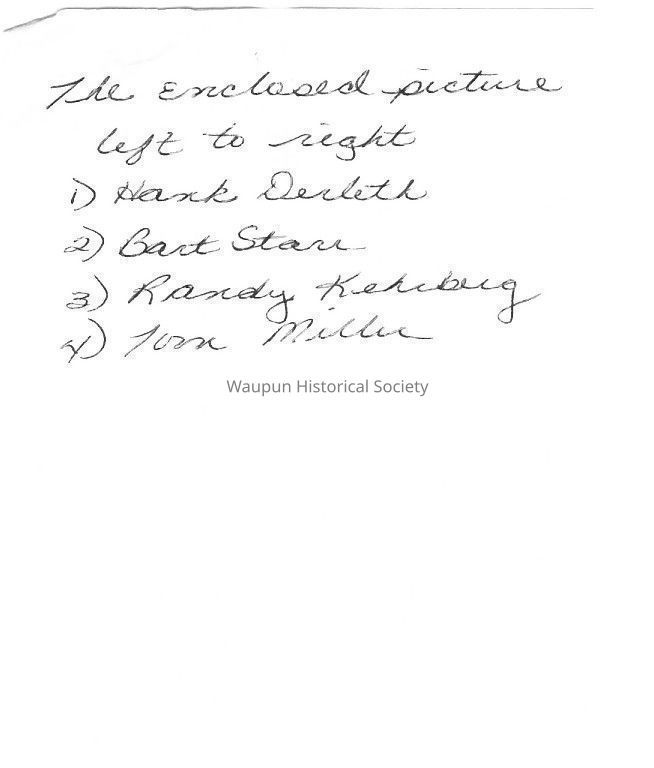 The enclosed picture
left to right
1) Hank Derleth
2) Bart Starr
3) Randy Kehrberg
4) Tom Miller
Waupun Historical Society